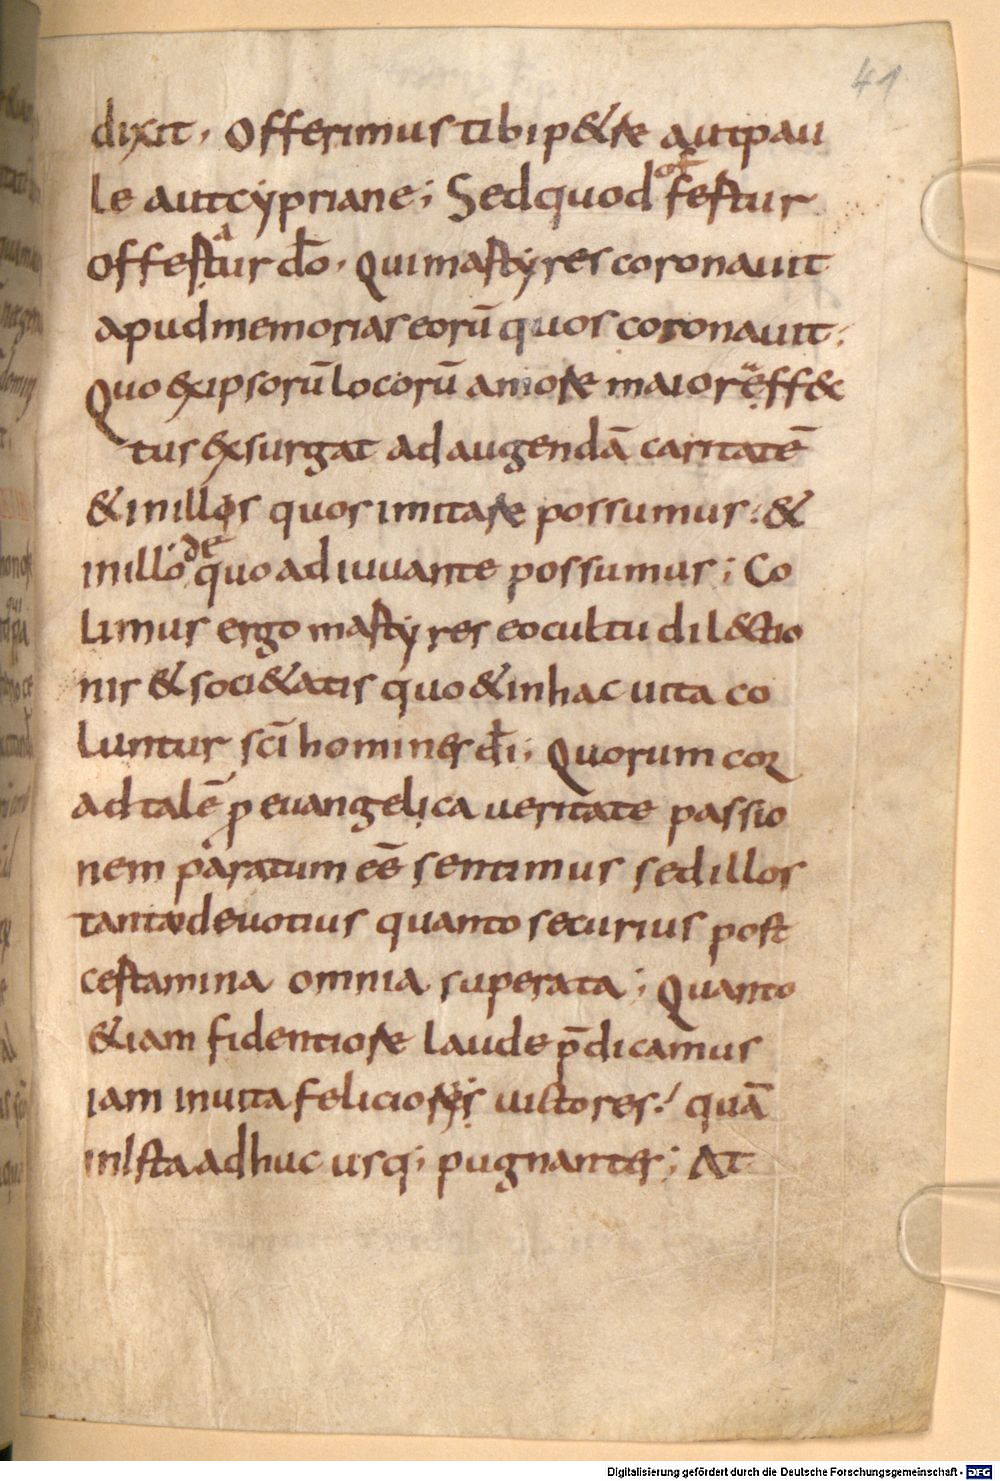 41
dixit, Offerimus tibi p&re aut pau
le aut cẏpriane; Sed quod offertur
offertur dō. Qui martẏres coronauit
apud memorias eorū quos coronauit;
Quo ex ipsorū locorū amore maior eff&
tus exsurgat ad augendā caritatē
& in illos quos imitare possumus; &
in illō de quo adiuuante possumus; Co
limus ergo martẏres eo cultu dil&ctio
nis & soci&atis quo & in hac uita co
luntur sc̄i homines dī; Quorum cor
ad talē p euangelica ueritate passio
nem paratum eē sentimus sed illos
tanto deuotius quanto securius post
certamina omnia superata; Quanto
&iam fidentiore laude p̄dicamus
iam in uita feliciores uictores! quā
in ista adhuc usq; pugnantes; At
Digitalisierung gefördert durch die Deutsche Forschungsgemeinschaft - DFG